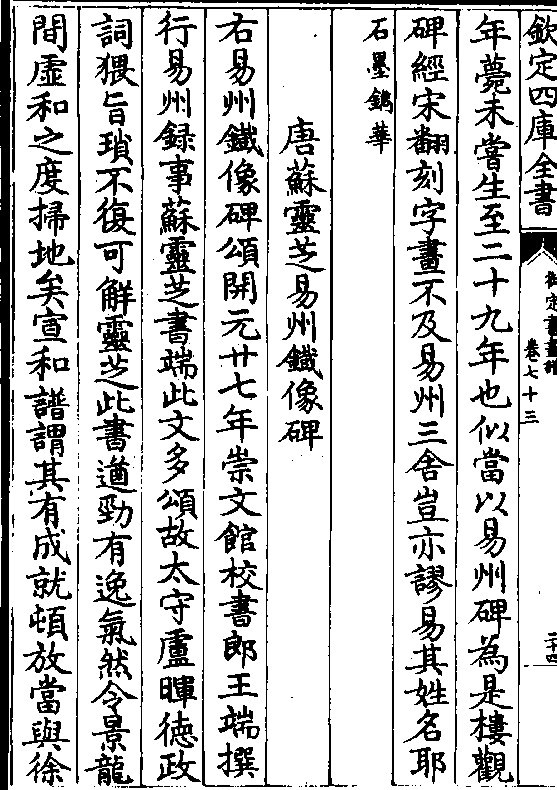 欽定四庫全書
御定書畫譜
卷七十三
二十四
年薨未嘗生至二十九年也似當以易州碑為是樓觀
碑經宋翻刻字畫不及易州三舍豈亦謬易其姓名耶
石墨鐫華
唐蘇靈芝易州鐵像碑
右易州鐵像碑頌開元廿七年崇文館校書郎王端撰
行易州録事蘇靈芝書端此文多頌故太守盧暉徳政
詞猥旨瑣不復可解靈芝此書遒勁有逸氣然令景龍
間虛和之度掃地矣宣和譜謂其有成就頓放當與徐